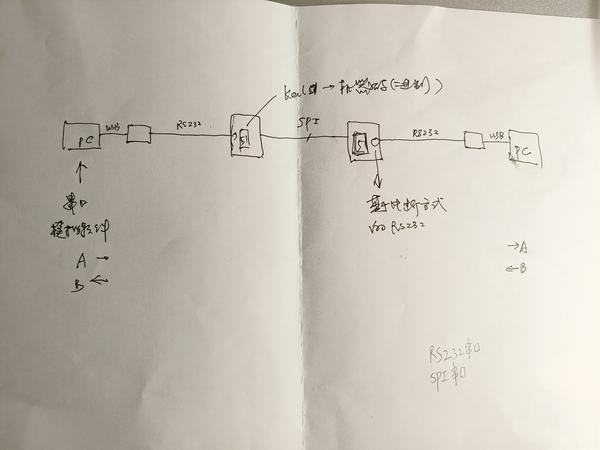 Keil 51 → 机器码(二进制)
PC
USB
RS232
51
SPI
51
RS232
USB
PC
串口
模拟软件
A →
B ←
基于中断方式
I/O RS232
→ A
← B
RS232串口
SPI串口